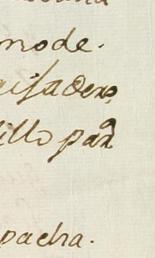 mode.
aisadero,
illo par
pacha.